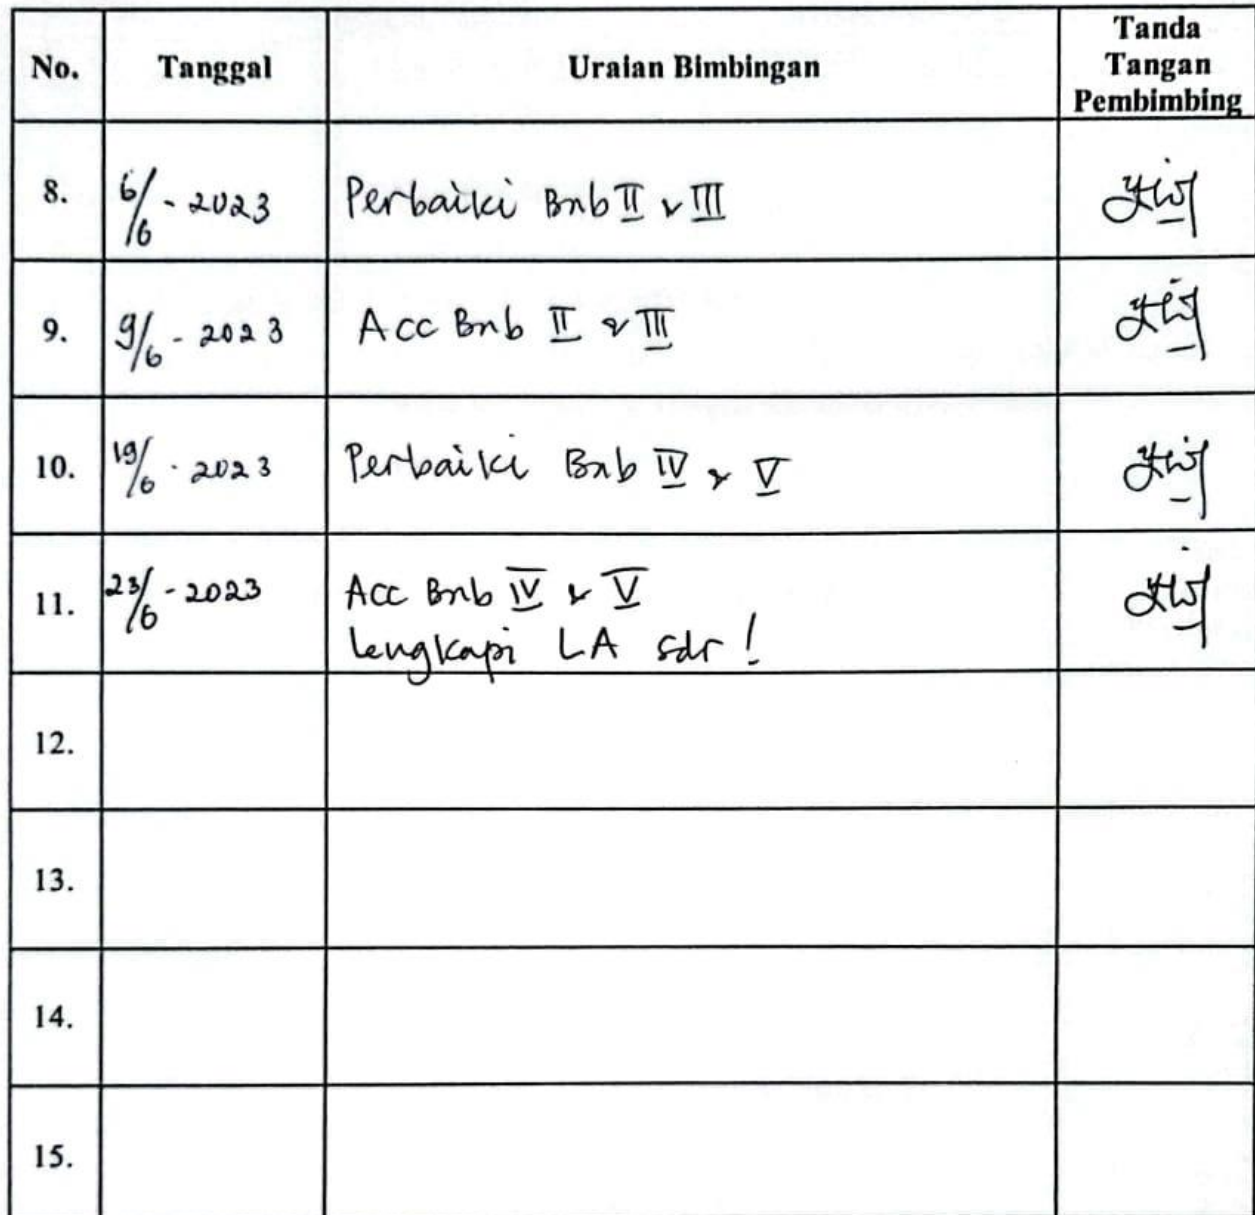 No. Tanggal Uraian Bimbingan Tanda
Tangan
Pembimbing
8. 6/6 - 2023 Perbaiki Bab II & III
9. 9/6 - 2023 Acc Bab II & III
10. 19/6 - 2023 Perbaiki Bab IV & V
11. 23/6 - 2023 Acc Bab IV & V
lengkapi LA sdr !
12.
13.
14.
15.